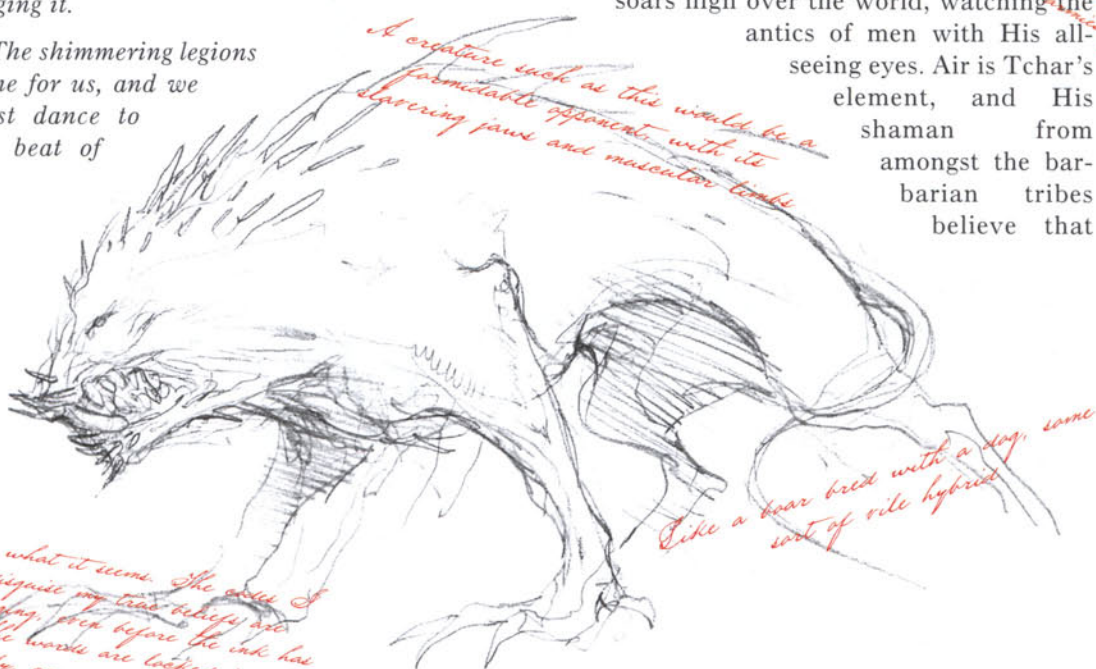 ging it.
The shimmering legions
ne for us, and we
st dance to
beat of
A creature such as this would be a
formidable opponent, with its
slavering jaws and muscular limbs
soars high over the world, watching the
antics of men with His all-
seeing eyes. Air is Tchar's
element, and His
shaman from
amongst the bar-
barian tribes
believe that
Like a boar bred with a dog, some
sort of vile hybrid
what it seems. The codes I
isguise my true beliefs are
ging, even before the ink has
words are locked